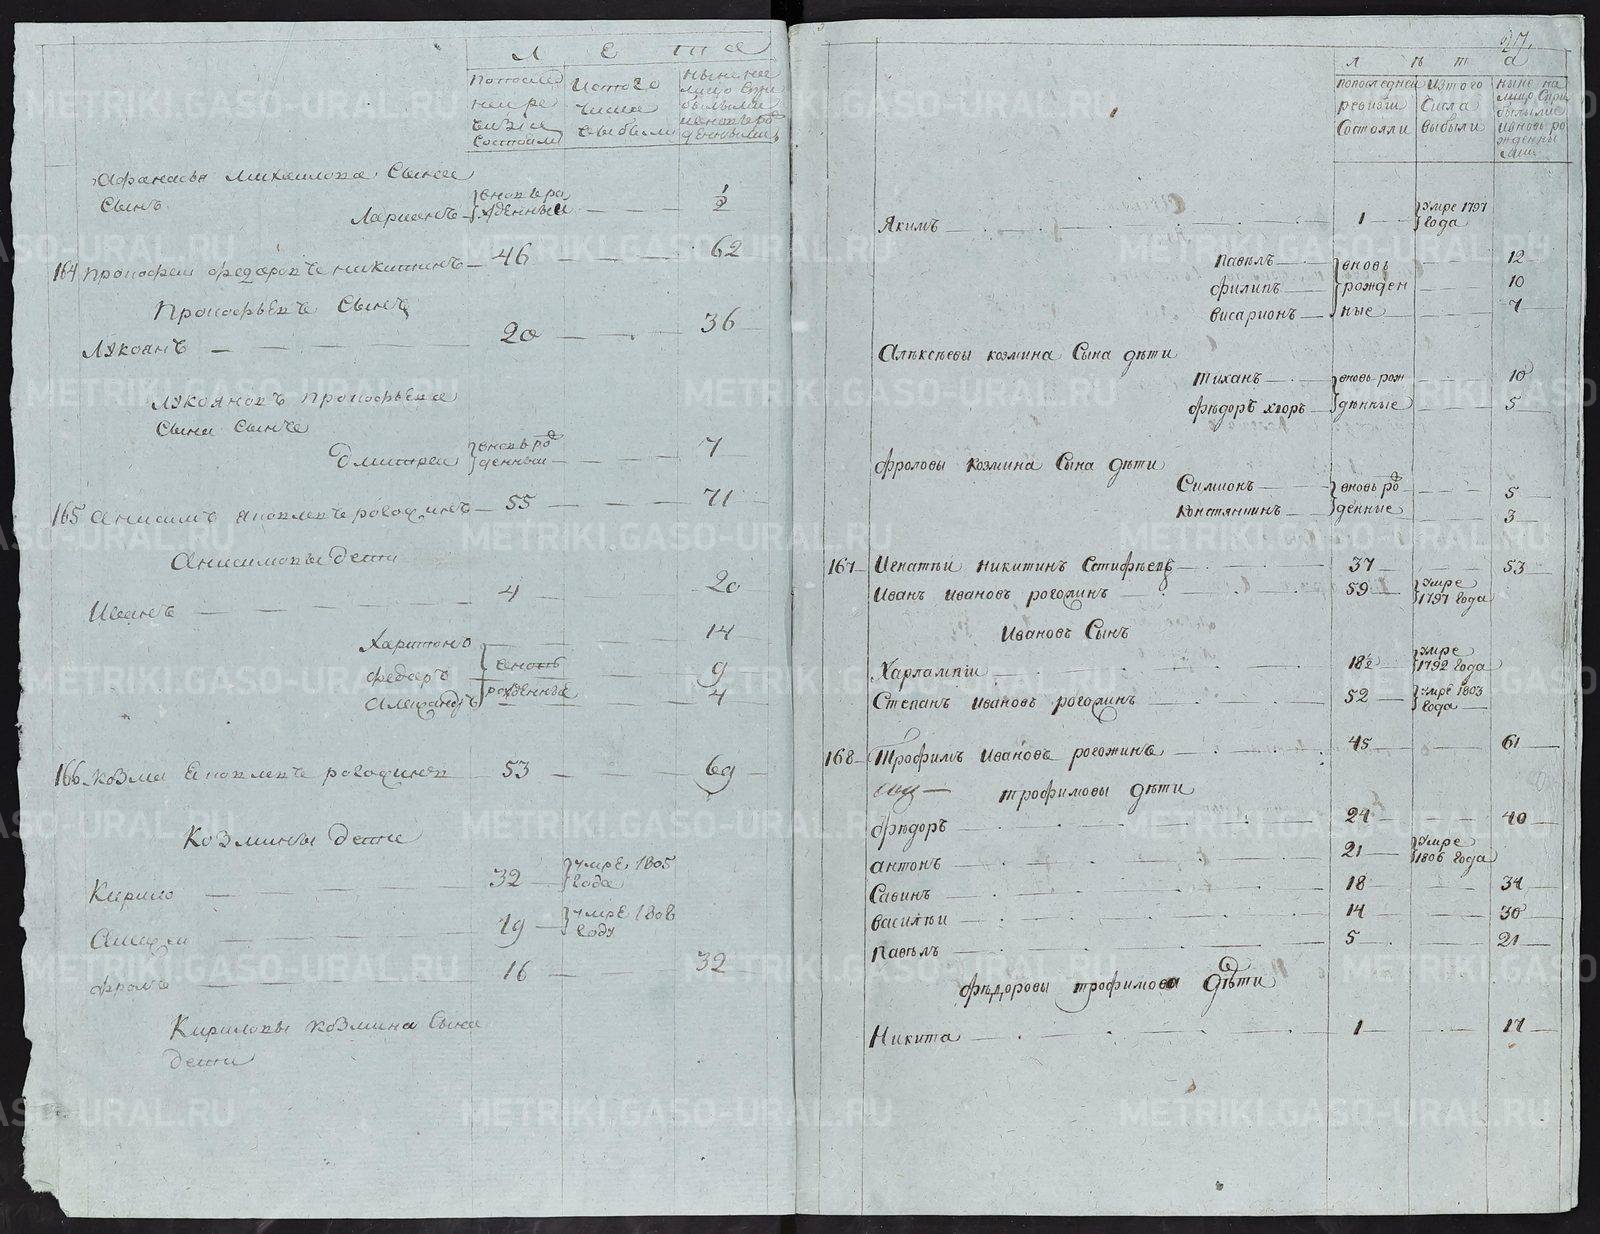 Л Е Т А
По после
ней ре
визiи
состояли
Ис того
числа
выбыли
Ныне на
лицо с при
былыми
и вновь ро
жденными
Афанасья Михаилова сына
сынъ
Ларионъ вновь ро
жденный 1/2
164 Прокофеи Федоровъ Никитинъ 46 62
Прокофьевъ сынъ
Лукоянъ 20 36
Лукояновъ Прокофьева
сына сынъ
Дмитреи вновь ро
жденный 7
165 Анисимъ Яковлевъ Рогожинъ 55 71
Анисимовы дети
Иванъ 4 20
Харитонъ 14
Федоръ вновь 9
Алежандръ рожденные 4
166 Козма Яковлевъ Рогожинъ 53 69
Козмины дети
Кирило 32 умре 1805
года
19 умре 1806
году
Фролъ 16 32
Кириловы Козмина сына
дети
27.
л ѣ т а
по последней
ревизiи
состояли
из того
числа
выбыли
ныне на
лицо с при
былыми
и вновь ро
жденны
ми
Якимъ 1 умре 1797
года
Павелъ вновь 12
Филипъ рожден 10
Висарионъ ные 7
Алѣксѣевы Козмина сына дѣти
Тиханъ вновь рож 10
Фѣдоръ Хторъ дѣнные 5
Фроловы Козмина сына дѣти
Симионъ вновь ро 5
Констянтинъ жденные 3
167 Игнатьи Никитинъ Статифѣевъ 37 53
Иванъ Ивановъ Рогожинъ 59 умре
1797 года
Ивановъ сынъ
Харлампiи 18½ умре
1792 года
Степанъ Ивановъ Рогожинъ 52 умре 1803
года
168 Трофимъ Ивановъ Рогожинъ 45 61
Трофимовы дѣти
Фѣдоръ 24 40
Антонъ 21 умре
1806 года
Савинъ 18 34
Василѣи 14 30
Павѣлъ 5 21
Фѣдоровы Трофимова дѣти
Никита 1 17
METRIKI.GASO-URAL.RU